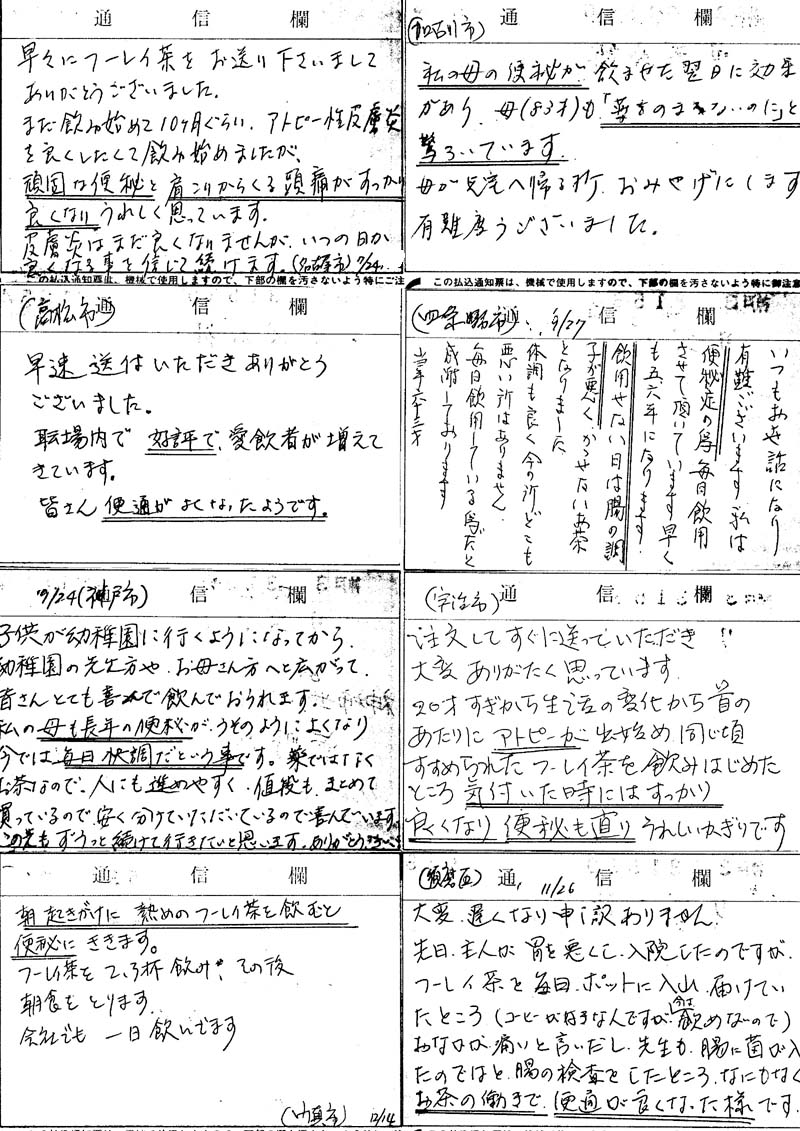 通信欄
早々にフーレイ茶を お送り下さいまして
ありがとうございました。
まだ飲み始めて10ヶ月ぐらい、アトピー性皮膚炎
を良くしたくて飲み始めましたが、
頑固な便秘と肩こりからくる頭痛がすっかり
良くなり うれしく思っています。
皮膚炎はまだ良くなりませんが、いつの日か
良くなる事を信じて続けます。(名古屋市)
の払込通知票は、機械で使用しますので、下部の欄を汚さないよう特にご注
(加古川市)
通信欄
私の母の便秘が 飲ませた翌日に効果
があり、母(83才)も「薬をのませないのに」と
驚ろいています。
母が兄宅へ帰る折、おみやげにします
有難度うございました。
この払込通知票は、機械で使用しますので、下部の欄を汚さないよう特に御注意
(高松市)
通信欄
早速 送付いただき ありがとう
ございました。
職場内で 好評で、愛飲者が増えて
きています。
皆さん 便通が よくなったようです。
(四条畷市) 9/27
通信欄
いつもお世話になり
有難ございます 私は
便秘症の為 毎日飲用
させて頂いています 早く
も五六年になります。
飲用せない日は腸の調
子が悪く、かゝせないお茶
となりました
体調も良く 今の所どこも
悪い所はありません。
毎日飲用している為だと
感謝しております
当年六十三才
9/24(神戸市)
信欄
子供が幼稚園に行くようになってから、
幼稚園の先生方や、お母さん方へと広がって、
皆さんとても喜んで飲んでおられます。
私の母も長年の便秘が、うそのようによくなり
今では毎日快調だという事です。薬ではなく
お茶なので、人にも進めやすく、値段も、まとめて
買っているので、安く分けていただいているので喜んでいます。
この先も ずうっと続けて行きたいと思います。ありがとうござい
(宇治市)
通信欄
注文してすぐに送っていただき !!
大変 ありがたく思っています。
20才すぎから生活の変化から首の
あたりにアトピーが出始め、同じ頃
すすめられた フーレイ茶を飲みはじめた
ところ 気付いた時にはすっかり
良くなり 便秘も直り うれしいかぎりです
通信欄
朝 起きがけに 熱めのフーレイ茶を飲むと
便秘に ききます。
フーレイ茶を 2、3杯 飲み、その後
朝食を とります
会社でも 一日 飲んでます
12/14
(須磨区)
通信欄
11/26
大変 遅くなり申し訳ありません
先日、主人が 胃を悪くし、入院したのですが、
フーレイ茶を毎日、ポットに入れ、届けてい
たところ(コーヒーが好きなんですが、今は飲めないので)
おなかが痛いと言いだし、先生も、腸に菌が入っ
たのではと、腸の検査をしたところ、なにもなく
お茶の働きで、便通が良くなった様です。